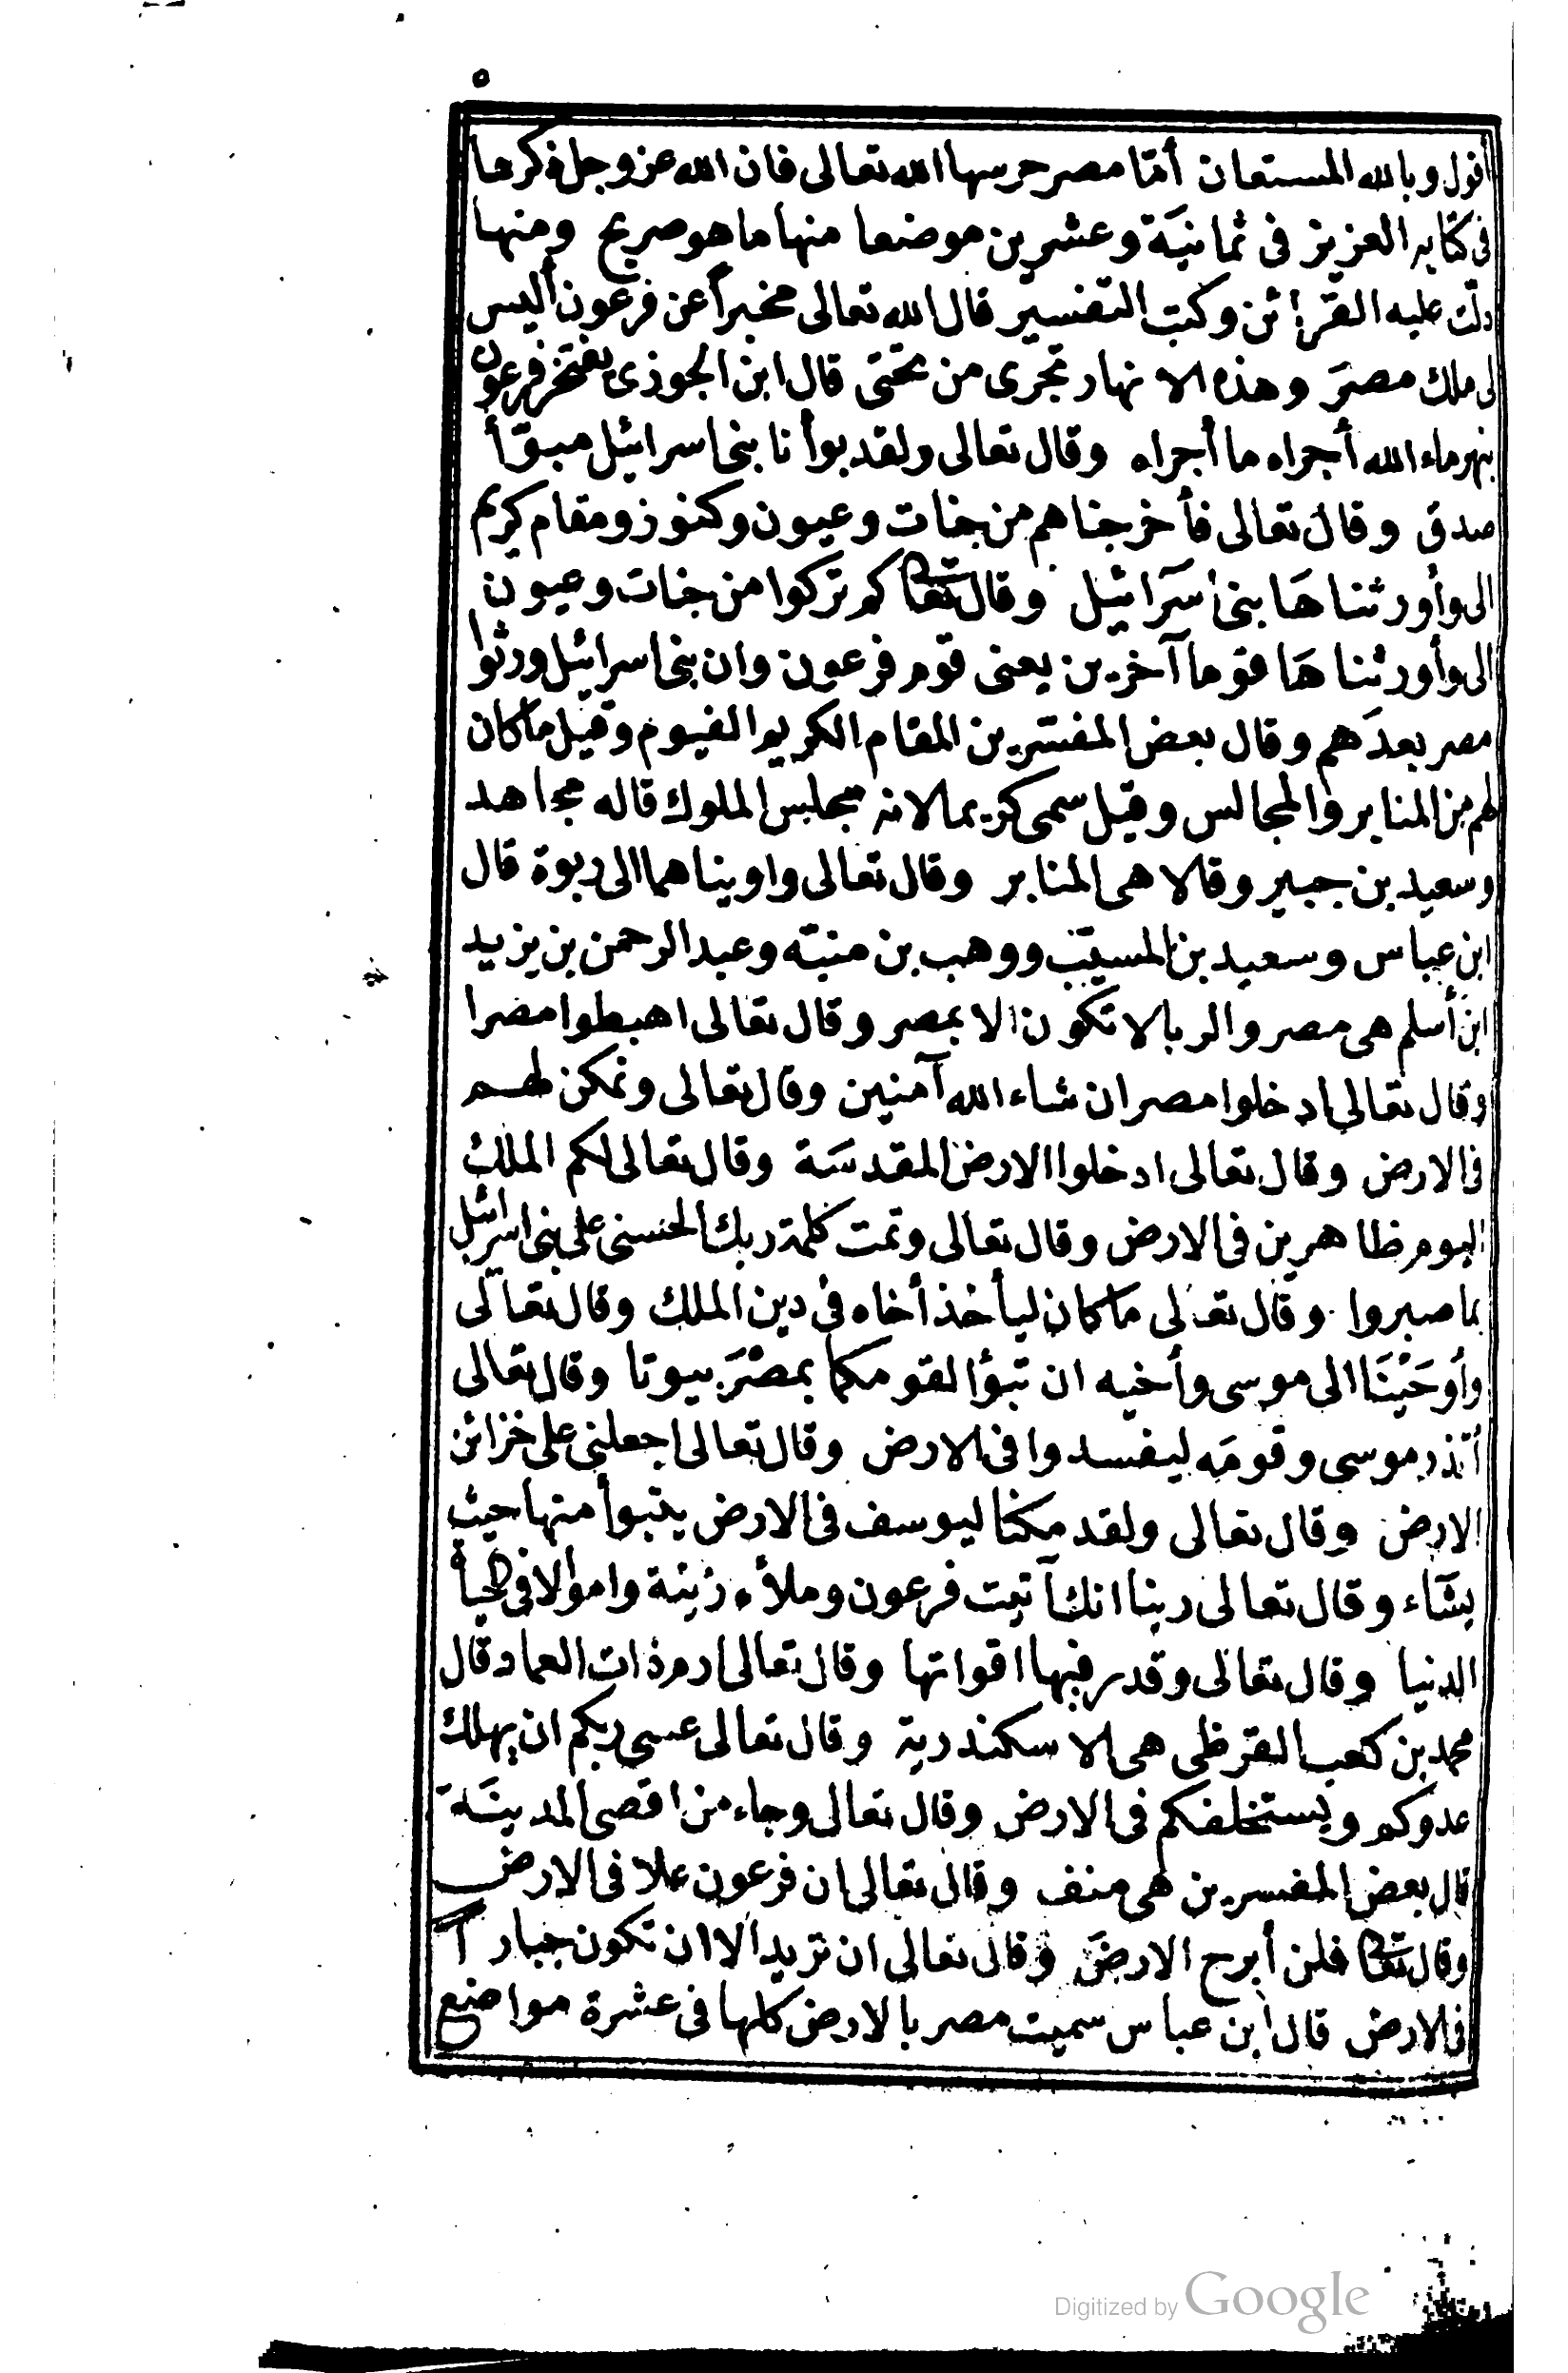 ٥
أقول وبالله المستعان أمّا مصر حرسها الله تعالى فان الله عز وجل ذكرها
فى كتابه العزيز فى ثمانيَة وعشرين موضعا منها ما هو صريح ومنها
دلّت عليه القرائن وكتب التفسير قال الله تعالى مخبراً عن فرعون أليس
لى ملك مصرَ وهذه الانهار تجرى من تحتى قال ابن الجوزى يفتخر فرعون
بنهر ماء الله أجراه ما أجراه وقال تعالى ولقد بوأنا بنى اسرائيل مبوّأ
صدق وقال تعالى فأخرجناهم من جنات وعيون وكنوز ومقام كريم
الى وأورثناهَا بنى اسَرآئيل وقال تعالى كم تركوا من جنات وعيون
الى وأورثناهَا قوما آخرين يعنى قوم فرعون وان بنى اسرائيل ورثوا
مصر بعدَهم وقال بعض المفسّرين المقام الكريم الفيوم وقيل ما كان
لهم من المنابر والمجالس وقيل سمى كريما لانه مجلس الملوك قاله مجاهد
وسعيد بن جبير وقالا هى المنابر وقال تعالى واويناهما الى ربوة قال
ابن عباس وسعيد بن المسيّب ووهب بن منبّه وعبد الرحمن بن يزيد
ابن أسلم هى مصر والربا لا تكون الا بمصر وقال تعالى اهبطوا مصرا
وقال تعالى ادخلوا مصر ان شاء الله آمنين وقال تعالى ونمكن لهم
فى الارض وقال تعالى ادخلوا الارض المقدسَة وقال تعالى لكم الملك
اليوم ظاهرين فى الارض وقال تعالى وتمت كلمة ربك الحسنى على بنى اسرائيل
بما صبروا وقال تعالى ما كان ليأخذ أخاه فى دين الملك وقال تعالى
وأوحَيْنَا الى موسى وأخيه ان تبوؤا لقومكما بمصْرَ بيوتا وقال تعالى
أتذر موسى وقومَه ليفسدوا فى الارض وقال تعالى اجعلنى على خزائن
الارض وقال تعالى ولقد مكنا ليوسف فى الارض يتبوأ منها حيث
يشآء وقال تعالى ربنا انك آتيت فرعون وملأه زينة واموالا فى الحياة
الدنيا وقال تعالى وقدر فيها اقواتها وقال تعالى ارم ذات العماد قال
محمد بن كعب القرظى هى الاسكندرية وقال تعالى عسى ربكم ان يهلك
عدوكم ويستخلفكم فى الارض وقال تعالى وجاء من اقصى المدينَة
قال بعض المفسرين هى منف وقال تعالى ان فرعون علا فى الارض
وقال تعالى فلن أبرح الارضَ وقال تعالى ان تريد الا ان تكون جبارا
فى الارض قال ابن عباس سميت مصر بالارض كلها فى عشرة مواضع
Digitized by Google